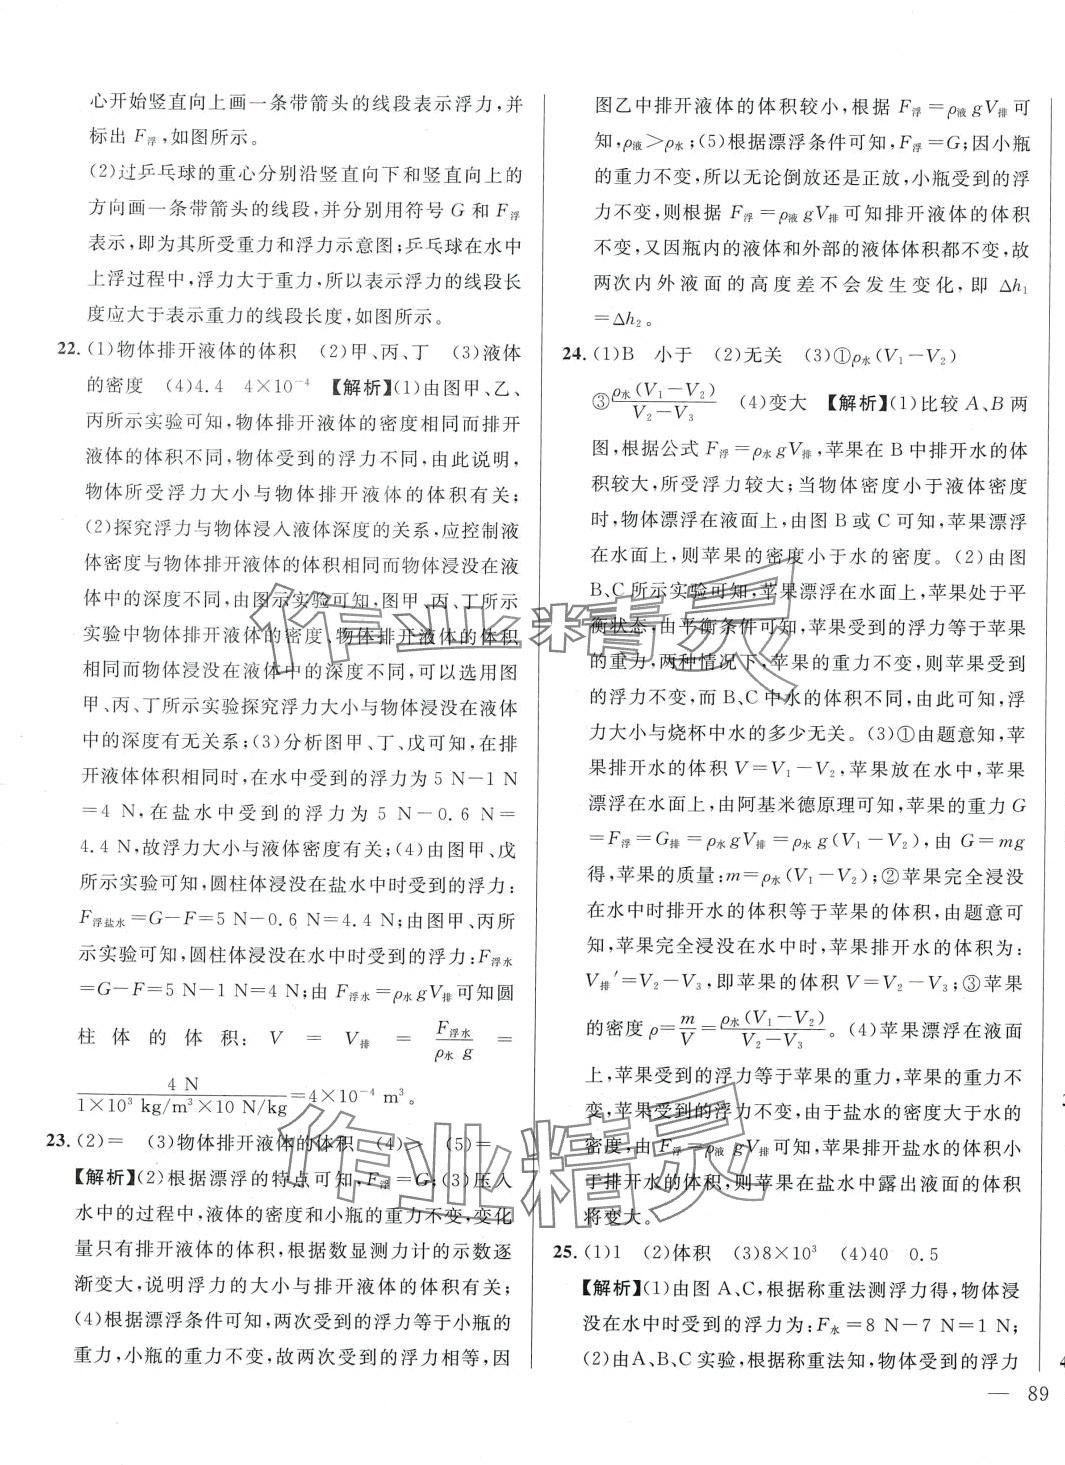 心开始竖直向上画一条带箭头的线段表示浮力,并
标出 F浮,如图所示。
(2)过乒乓球的重心分别沿竖直向下和竖直向上的
方向画一条带箭头的线段,并分别用符号 G 和 F浮
表示,即为其所受重力和浮力示意图;乒乓球在水中
上浮过程中,浮力大于重力,所以表示浮力的线段长
度应大于表示重力的线段长度,如图所示。
22. (1)物体排开液体的体积 (2)甲、丙、丁 (3)液体
的密度 (4)4.4 4×10⁻⁴ 【解析】(1)由图甲、乙、
丙所示实验可知,物体排开液体的密度相同而排开
液体的体积不同,物体受到的浮力不同,由此说明,
物体所受浮力大小与物体排开液体的体积有关;
(2)探究浮力与物体浸入液体深度的关系,应控制液
体密度与物体排开液体的体积相同而物体浸没在液
体中的深度不同,由图示实验可知,图甲、丙、丁所示
实验中物体排开液体的密度、物体排开液体的体积
相同而物体浸没在液体中的深度不同,可以选用图
甲、丙、丁所示实验探究浮力大小与物体浸没在液体
中的深度有无关系;(3)分析图甲、丁、戊可知,在排
开液体体积相同时,在水中受到的浮力为 5 N−1 N
=4 N,在盐水中受到的浮力为 5 N−0.6 N=
4.4 N,故浮力大小与液体密度有关;(4)由图甲、戊
所示实验可知,圆柱体浸没在盐水中时受到的浮力:
F浮盐水=G−F=5 N−0.6 N=4.4 N;由图甲、丙所
示实验可知,圆柱体浸没在水中时受到的浮力:F浮水
=G−F=5 N−1 N=4 N;由 F浮水=ρ水gV排可知圆
柱体的体积: V = V排 = F浮水/ρ水 g =
4 N/1×10³ kg/m³×10 N/kg=4×10⁻⁴ m³。
23. (2)= (3)物体排开液体的体积 (4)− (5)=
【解析】(2)根据漂浮的特点可知,F浮=G;(3)压入
水中的过程中,液体的密度和小瓶的重力不变,变化
量只有排开液体的体积,根据数显测力计的示数逐
渐变大,说明浮力的大小与排开液体的体积有关;
(4)根据漂浮条件可知,两次受到的浮力等于小瓶的
重力,小瓶的重力不变,故两次受到的浮力相等,因
图乙中排开液体的体积较小,根据 F浮=ρ液gV排可
知,ρ液>ρ水;(5)根据漂浮条件可知,F浮=G;因小瓶
的重力不变,所以无论倒放还是正放,小瓶受到的浮
力不变,则根据 F浮=ρ液gV排可知排开液体的体积
不变,又因瓶内的液体和外部的液体体积都不变,故
两次内外液面的高度差不会发生变化,即 Δh₁
=Δh₂。
24. (1)B 小于 (2)无关 (3)①ρ水(V₁−V₂)
③ρ水(V₁−V₂)/V₂−V₃ (4)变大 【解析】(1)比较 A、B 两
图,根据公式 F浮=ρ水gV排,苹果在 B 中排开水的体
积较大,所受浮力较大;当物体密度小于液体密度
时,物体漂浮在液面上,由图 B 或 C 可知,苹果漂浮
在水面上,则苹果的密度小于水的密度。(2)由图
B、C 所示实验可知,苹果漂浮在水面上,苹果处于平
衡状态,由平衡条件可知,苹果受到的浮力等于苹果
的重力,两种情况下,苹果的重力不变,则苹果受到
的浮力不变,而 B、C 中水的体积不同,由此可知,浮
力大小与烧杯中水的多少无关。(3)①由题意知,苹
果排开水的体积 V=V₁−V₂,苹果放在水中,苹果
漂浮在水面上,由阿基米德原理可知,苹果的重力 G
=F浮=G排=ρ水gV排=ρ水 g(V₁−V₂),由 G=mg
得,苹果的质量:m=ρ水(V₁−V₂);②苹果完全浸没
在水中时排开水的体积等于苹果的体积,由题意可
知,苹果完全浸没在水中时,苹果排开水的体积为:
V排′=V₂−V₃,即苹果的体积 V=V₂−V₃;③苹果
的密度 ρ=m/V=ρ水(V₁−V₂)/V₂−V₃。(4)苹果漂浮在液面
上,苹果受到的浮力等于苹果的重力,苹果的重力不
变,苹果受到的浮力不变,由于盐水的密度大于水的
密度,由 F浮=ρ液 gV排可知,苹果排开盐水的体积小
于排开水的体积,则苹果在盐水中露出液面的体积
将变大。
25. (1)1 (2)体积 (3)8×10³ (4)40 0.5
【解析】(1)由图 A、C,根据称重法测浮力得,物体浸
没在水中时受到的浮力为:F水=8 N−7 N=1 N;
(2)由A、B、C 实验,根据称重法知,物体受到的浮力
— 89
作业精灵
作业精灵